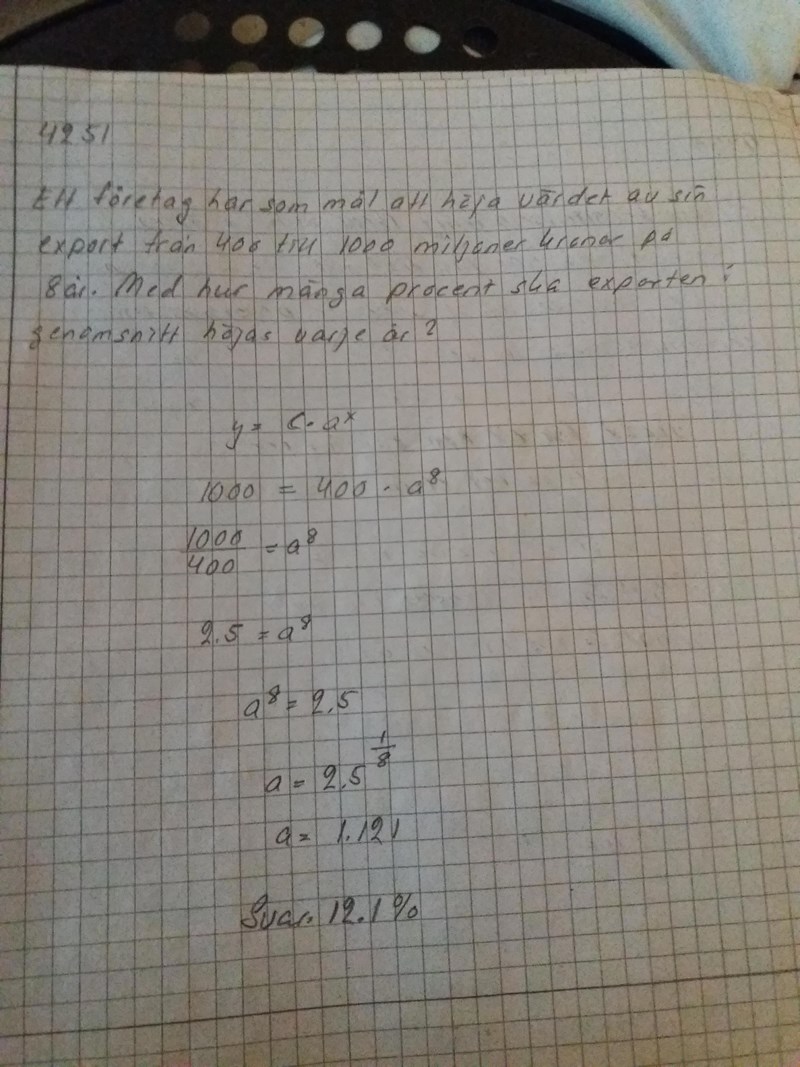 4251
Ett företag har som mål att höja värdet av sin
export från 400 till 1000 miljoner kronor på
8år. Med hur många procent ska exporten i
genomsnitt höjas varje år?
y = C · a^x
1000 = 400 · a^8
1000/400 = a^8
2.5 = a^8
a^8 = 2.5
a = 2.5^(1/8)
a = 1.121
Svar. 12.1%